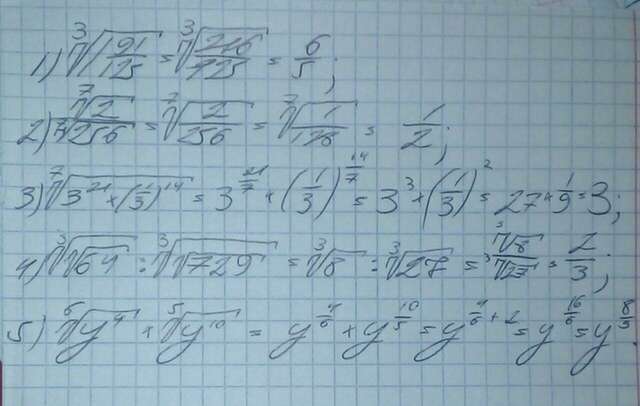 1) ∛(1 91/125) = ∛(216/125) = 6/5;
2) ⁷√2/⁷√256 = ⁷√(2/256) = ⁷√(1/128) = 1/2;
3) ⁷√(3²¹ × (1/3)¹⁴) = 3^(21/7) × (1/3)^(14/7) = 3³ × (1/3)² = 27 × 1/9 = 3;
4) ∛√64 : ∛√729 = ∛8 : ∛27 = ∛8/∛27 = 2/3;
5) ⁶√y⁴ × ⁵√y¹⁰ = y^(4/6) × y^(10/5) = y^(4/6 + 2) = y^(16/6) = y^(8/3).